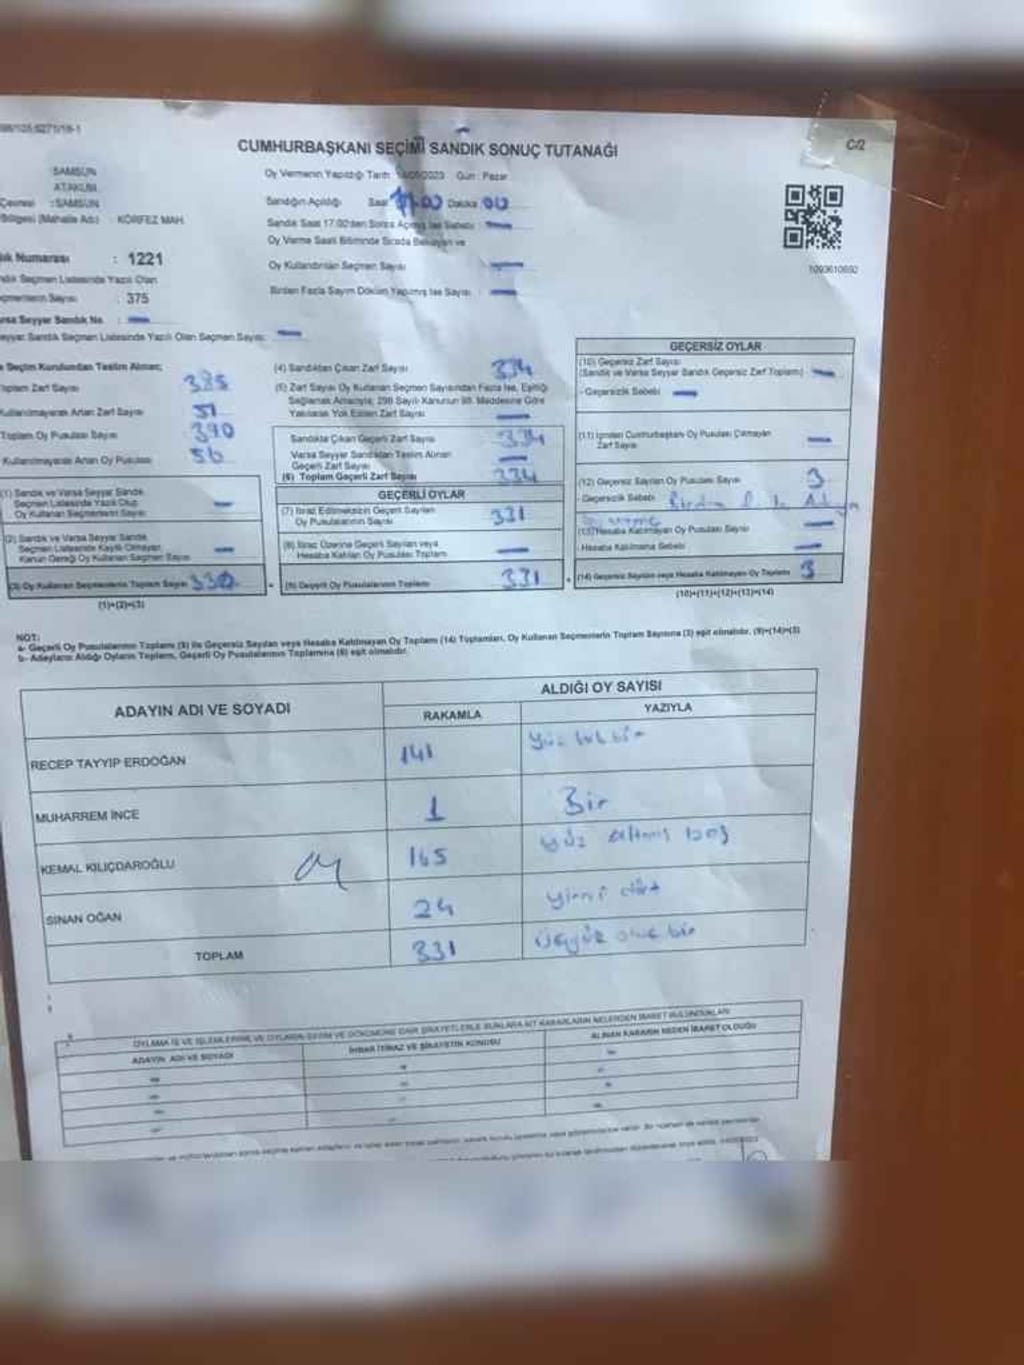 C/2
CUMHURBAŞKANI SEÇİMİ SANDIK SONUÇ TUTANAĞI
SAMSUN
ATAKUM
Çevresi : SAMSUN
Bölgesi (Mahalle Adı) : KÖRFEZ MAH.
Numarası : 1221
Seçmen Listesinde Yazılı Olan
Sayısı : 375
Varsa Seyyar Sandık No :
Seyyar Sandık Seçmen Listesinde Yazılı Olan Seçmen Sayısı:
Oy Vermenin Yapıldığı Tarih: 2023 Gün : Pazar
Sandığın Açıldığı Saat Dakika 00
Sandık Saat 17.00'den Sonra Açılmış İse Sebebi :
Oy Verme Saati Bitiminde Sırada Bekleyen ve
Oy Kullandırılan Seçmen Sayısı :
Birden Fazla Sayım Döküm Yapılmış İse Sayısı :
1093610692
Seçim Kurulundan Teslim Alınan;
Toplam Zarf Sayısı 385
Kullanılmayarak Artan Zarf Sayısı 51
Toplam Oy Pusulası Sayısı 390
Kullanılmayarak Artan Oy Pusulası 56
(1) Sandık ve Varsa Seyyar Sandık
Seçmen Listesinde Yazılı Olup
Oy Kullanan Seçmenlerin Sayısı
(2) Sandık ve Varsa Seyyar Sandık
Seçmen Listesinde Kayıtlı Olmayan
Kanun Gereği Oy Kullanan Seçmen Sayısı
(3) Oy Kullanan Seçmenlerin Toplam Sayısı
(1)+(2)=(3)
(4) Sandıktan Çıkan Zarf Sayısı 334
(5) Zarf Sayısı Oy Kullanan Seçmen Sayısından Fazla İse, Eşitliği
Sağlamak Amacıyla; 298 Sayılı Kanunun 98. Maddesine Göre
Yakılarak Yok Edilen Zarf Sayısı
Sandıkta Çıkan Geçerli Zarf Sayısı 334
Varsa Seyyar Sandıktan Teslim Alınan
Geçerli Zarf Sayısı
(6) Toplam Geçerli Zarf Sayısı 334
GEÇERLİ OYLAR
(7) İtiraz Edilmeksizin Geçerli Sayılan
Oy Pusulalarının Sayısı 331
(8) İtiraz Üzerine Geçerli Sayılan veya
Hesaba Katılan Oy Pusulası Toplamı
(9) Geçerli Oy Pusulalarının Toplamı 331
GEÇERSİZ OYLAR
(10) Geçersiz Zarf Sayısı
(Sandık ve Varsa Seyyar Sandık Geçersiz Zarf Toplamı)
- Geçersizlik Sebebi
(11) İçinden Cumhurbaşkanı Oy Pusulası Çıkmayan
Zarf Sayısı
(12) Geçersiz Sayılan Oy Pusulası Sayısı 3
- Geçersizlik Sebebi
(13) Hesaba Katılmayan Oy Pusulası Sayısı
- Hesaba Katılmama Sebebi
(14) Geçersiz Sayılan veya Hesaba Katılmayan Oy Toplamı 3
(10)+(11)+(12)+(13)=(14)
NOT:
a- Geçerli Oy Pusulalarının Toplamı (9) ile Geçersiz Sayılan veya Hesaba Katılmayan Oy Toplamı (14) Toplamları, Oy Kullanan Seçmenlerin Toplam Sayısına (3) eşit olmalıdır. (9)+(14)=(3)
b- Adayların Aldığı Oyların Toplamı, Geçerli Oy Pusulalarının Toplamına (9) eşit olmalıdır.
ADAYIN ADI VE SOYADI ALDIĞI OY SAYISI
RAKAMLA YAZIYLA
RECEP TAYYİP ERDOĞAN 141 Yüz kırk bir
MUHARREM İNCE 1 Bir
KEMAL KILIÇDAROĞLU 165 yüz altmış beş
SİNAN OĞAN 24 yirmi dört
TOPLAM 331 üçyüz otuz bir
OYLAMA İŞ VE İŞLEMLERİNE VE OYLARIN SAYIM VE DÖKÜMÜNE DAİR ŞİKAYETLERLE BUNLARA AİT KARARLARIN NELERDEN İBARET BULUNDUKLARI
ADAYIN ADI VE SOYADI İHBAR İTİRAZ VE ŞİKAYETİN KONUSU ALINAN KARARIN NEDEN İBARET OLDUĞU